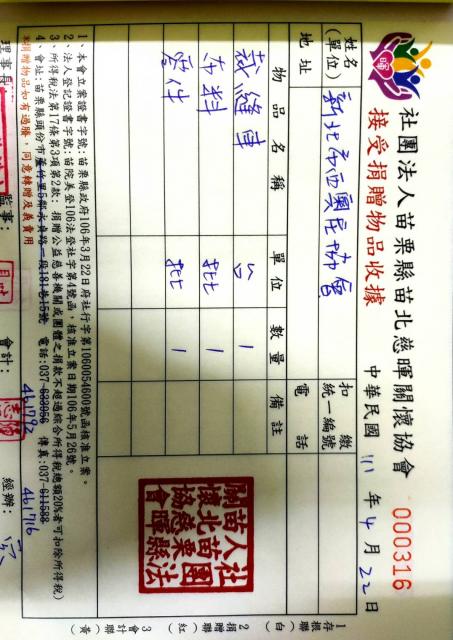 暉
社團法人苗栗縣苗北慈暉關懷協會
000316
接受捐贈物品收據
中華民國 111 年 4 月 22 日
姓名(單位)
扣繳統一編號
地址
電話
物品名稱 單位 數量 備註
裁縫車 台 1
布料 批 1
零件 批 1
社團法人苗栗縣苗北慈暉關懷協會
1、本會立案證書字號:苗栗縣政府106年3月22日府社行字第1060054600號函核准立案。
2、法人登記證書字號:苗院美登106法登社字第4號函,核准立案日期106年5月26號。
3、所得稅法第17條第3項第2款:捐贈公益慈善機關或團體之捐款不超過綜合所得稅總額20%者可扣除所得稅)
4、會址:苗栗縣頭份市蘆竹里5鄰永貞路一段181巷15號 電話:037- 461792 傳真:037-611588 461716
*捐贈物品如有過勝,同意轉贈及義賣用
理事長: 監事: 會計: 經辦:
1 存根聯(白)
2 捐贈聯(紅)
3 會計聯(黃)